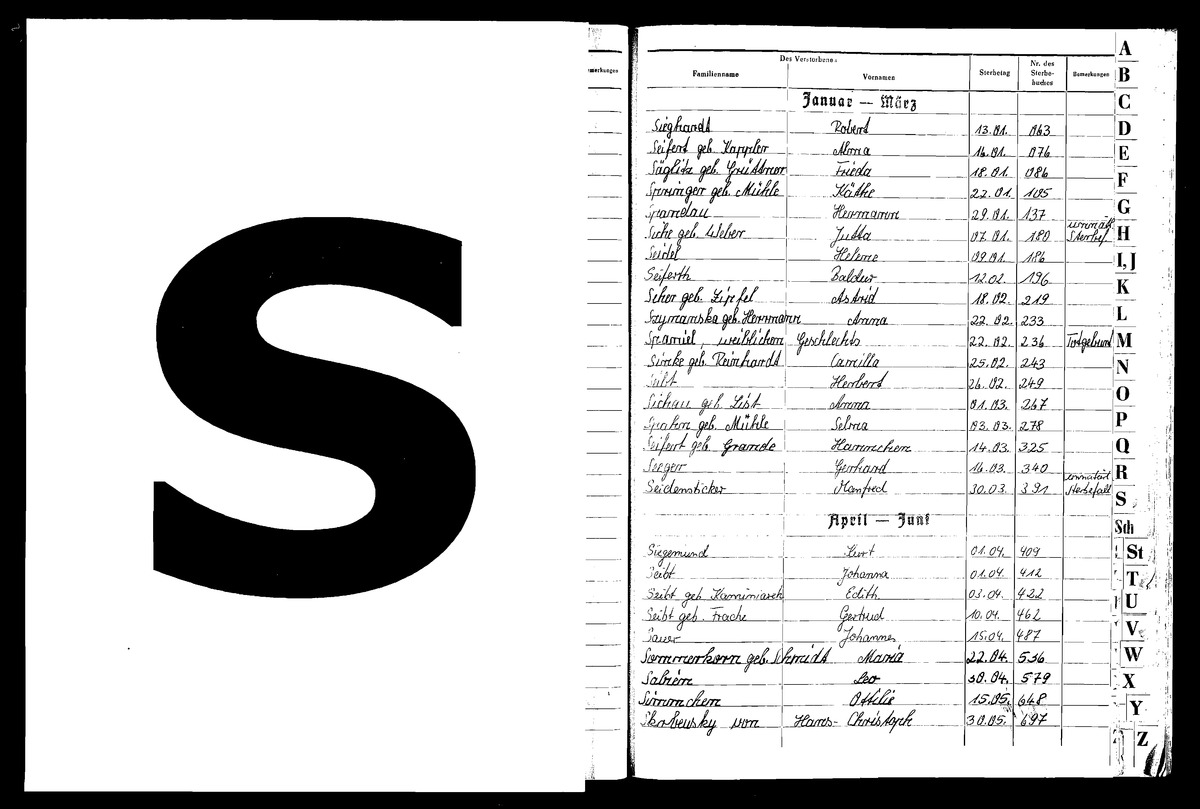 S
Bemerkungen
Des Verstorbenen
Familienname Vornamen Sterbetag Nr. des Sterbebuches Bemerkungen
Januar — März
Sieghardt Robert 13.01. 063
Seifert geb. Kappler Alma 16.01. 076
Säglitz geb. Grüttner Frieda 18.01. 086
Springer geb. Mühle Käthe 22.01. 105
Spandau Hermann 29.01. 137
Siche geb. Weber Jutta 07.01. 180
Seidel Helene 09.01. 186
Seiferth Baldur 12.02. 196
Scher geb. Zipfel Astrid 18.02. 219
Szymanska geb. Herrmann Anna 22.02. 233
Spaniel, weiblichen Geschlechts 22.02. 236 Totgeburt
Simke geb. Reinhardt Camilla 25.02. 243
Seibt Herbert 26.02. 249
Sichau geb. List Anna 01.03. 267
geb. Mühle Selma 03.03. 278
Seifert geb. Grande Hannchen 14.03. 325
Seeger Gerhard 16.03. 340
Seidensticker Manfred 30.03. 391
April — Juni
Siegemund Kurt 01.04. 409
Seibt Johanna 01.04. 412
Seibt geb. Kaminiarek Edith 03.04. 422
Seibt geb. Frache Gertrud 10.04. 462
Sauer Johannes 15.04. 487
Sommerkorn geb. Schmidt Maria 22.04. 536
Sabien Leo 30.04. 579
Simmchen Ottilie 15.05. 648
Skrbensky von Hans-Christoph 30.05. 697
A
B
C
D
E
F
G
H
I, J
K
L
M
N
O
P
Q
R
S
Sch
St
T
U
V
W
X
Y
Z